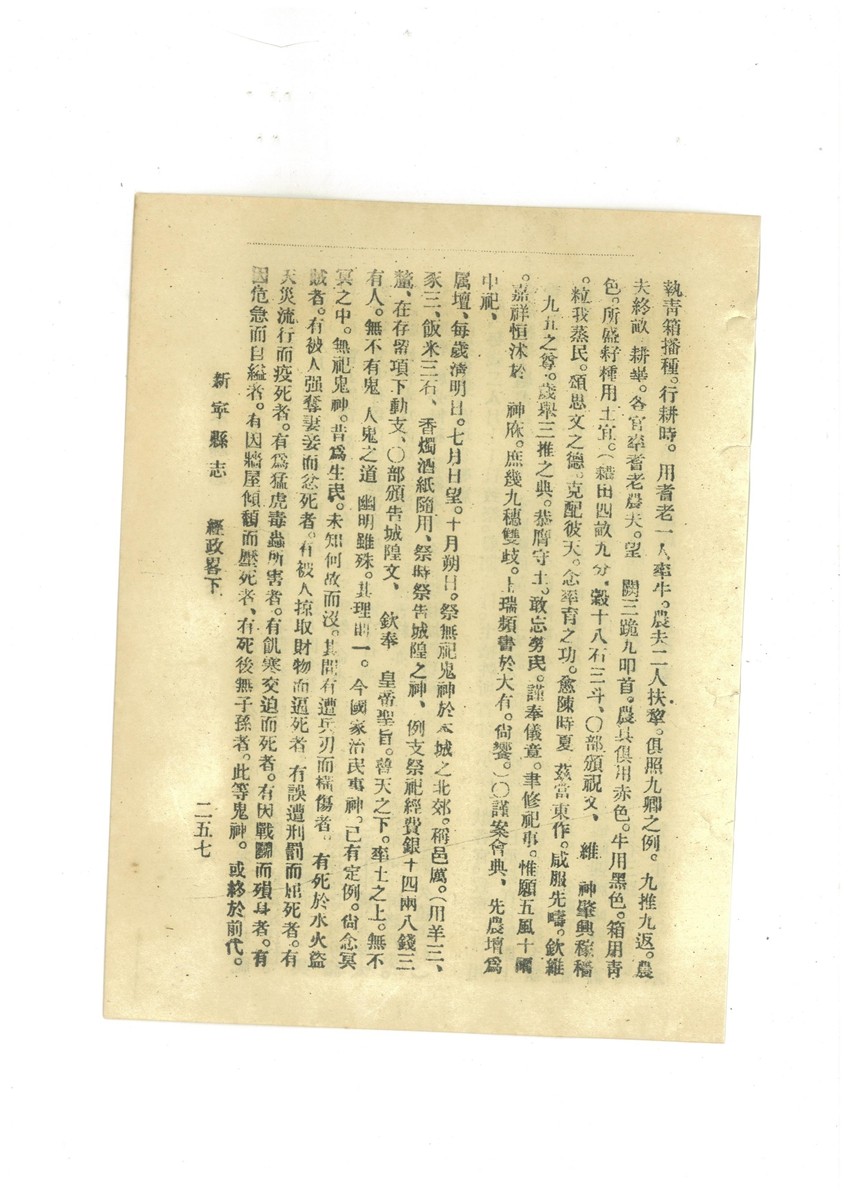 執青箱播種。行耕時。用耆老一人牽牛。農夫二人扶犂。俱照九卿之例。九推九返。農
夫終畝 耕畢。各官率耆老農夫。望 闕三跪九叩首。農具俱用赤色。牛用黑色。箱用青
色。所盛籽種用土宜。(藉田四畝九分。穀十八石三斗、〇部頒祝文、 維 神肇興稼穡
。粒我蒸民。頌思文之德。克配彼天。念率育之功。愈陳時夏 茲當東作。咸服先疇。欽維
九五之尊。歲舉三推之典。恭膺守土。敢忘勞民。謹奉儀章。聿修祀事。惟願五風十雨
。嘉祥恒沐於 神庥。庶幾九穗雙歧。上瑞頻書於大有。尙饗。)〇謹案會典、先農壇爲
中祀、
厲壇、每歲淸明日。七月日望。十月朔日。祭無祀鬼神於本城之北郊。稱邑厲。(用羊三、
豕三、飯米三石、香燭酒紙隨用、祭時祭告城隍之神、例支祭祀經費銀十四兩八錢三
釐、在存留項下動支、〇部頒告城隍文、 欽奉 皇帝聖旨。普天之下。率土之上。無不
有人。無不有鬼 人鬼之道 幽明雖殊。其理則一。今國家治民事神。已有定例。尙念冥
冥之中。無祀鬼神。昔爲生民。未知何故而沒。其間有遭兵刃而橫傷者。有死於水火盜
賊者。有被人强奪妻妾而忿死者。有被人掠取財物而逼死者 有誤遭刑罰而屈死者。有
天災流行而疫死者。有爲猛虎毒蟲所害者。有飢寒交迫而死者。有因戰鬭而殞身者。有
因危急而自縊者。有因牆屋傾頹而壓死者、有死後無子孫者。此等鬼神。或終於前代。
新寧縣志 經政畧下 二五七